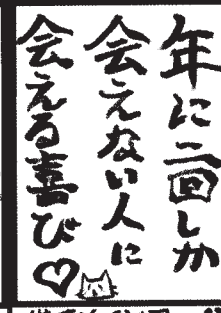 年に二回しか
会えない人に
会える喜び♡